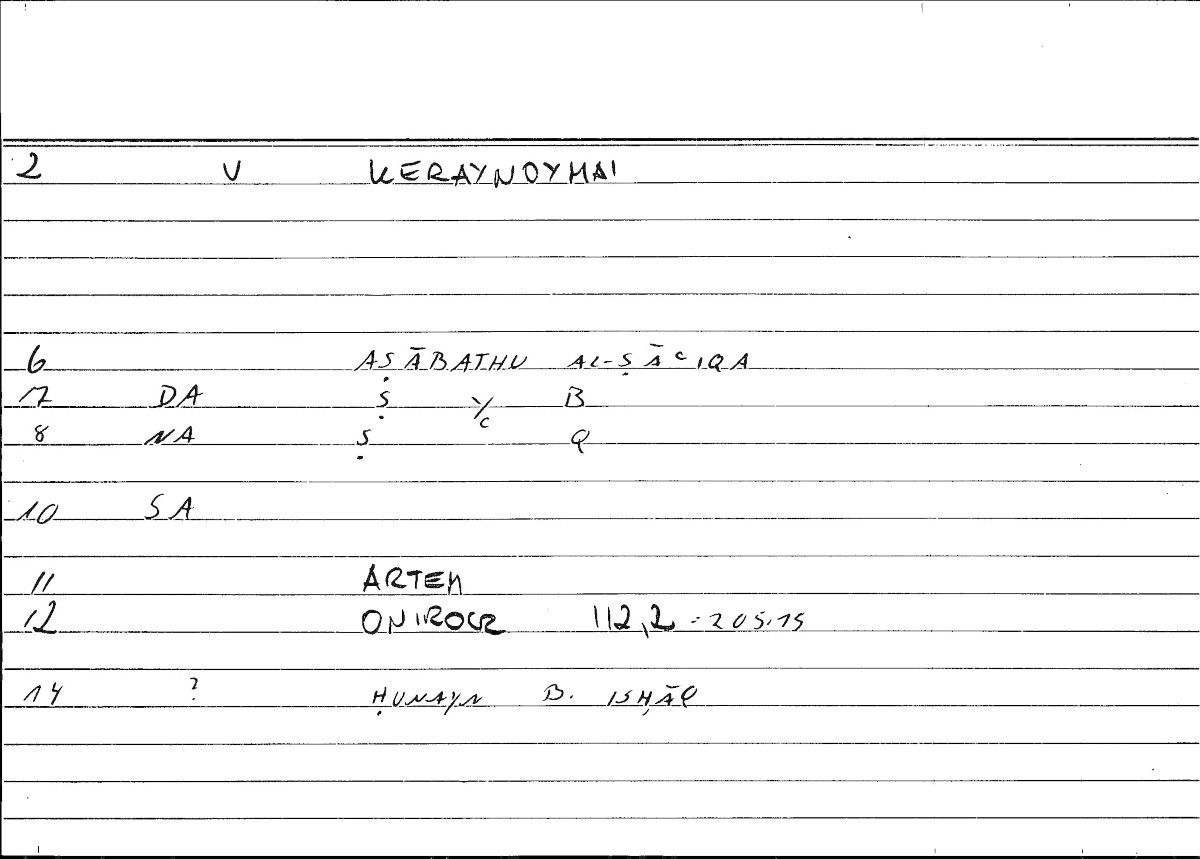 2 V KERAYNOYMAI
6 AṢĀBATHU AL-ṢĀᶜIQA
17 DA Ṣ Y/C B
8 NA Ṣ Q
10 SA
11 ARTEM
12 ONIROCR 112,2 - 205.15
14 ? ḤUNAYN B. ISḤĀQ